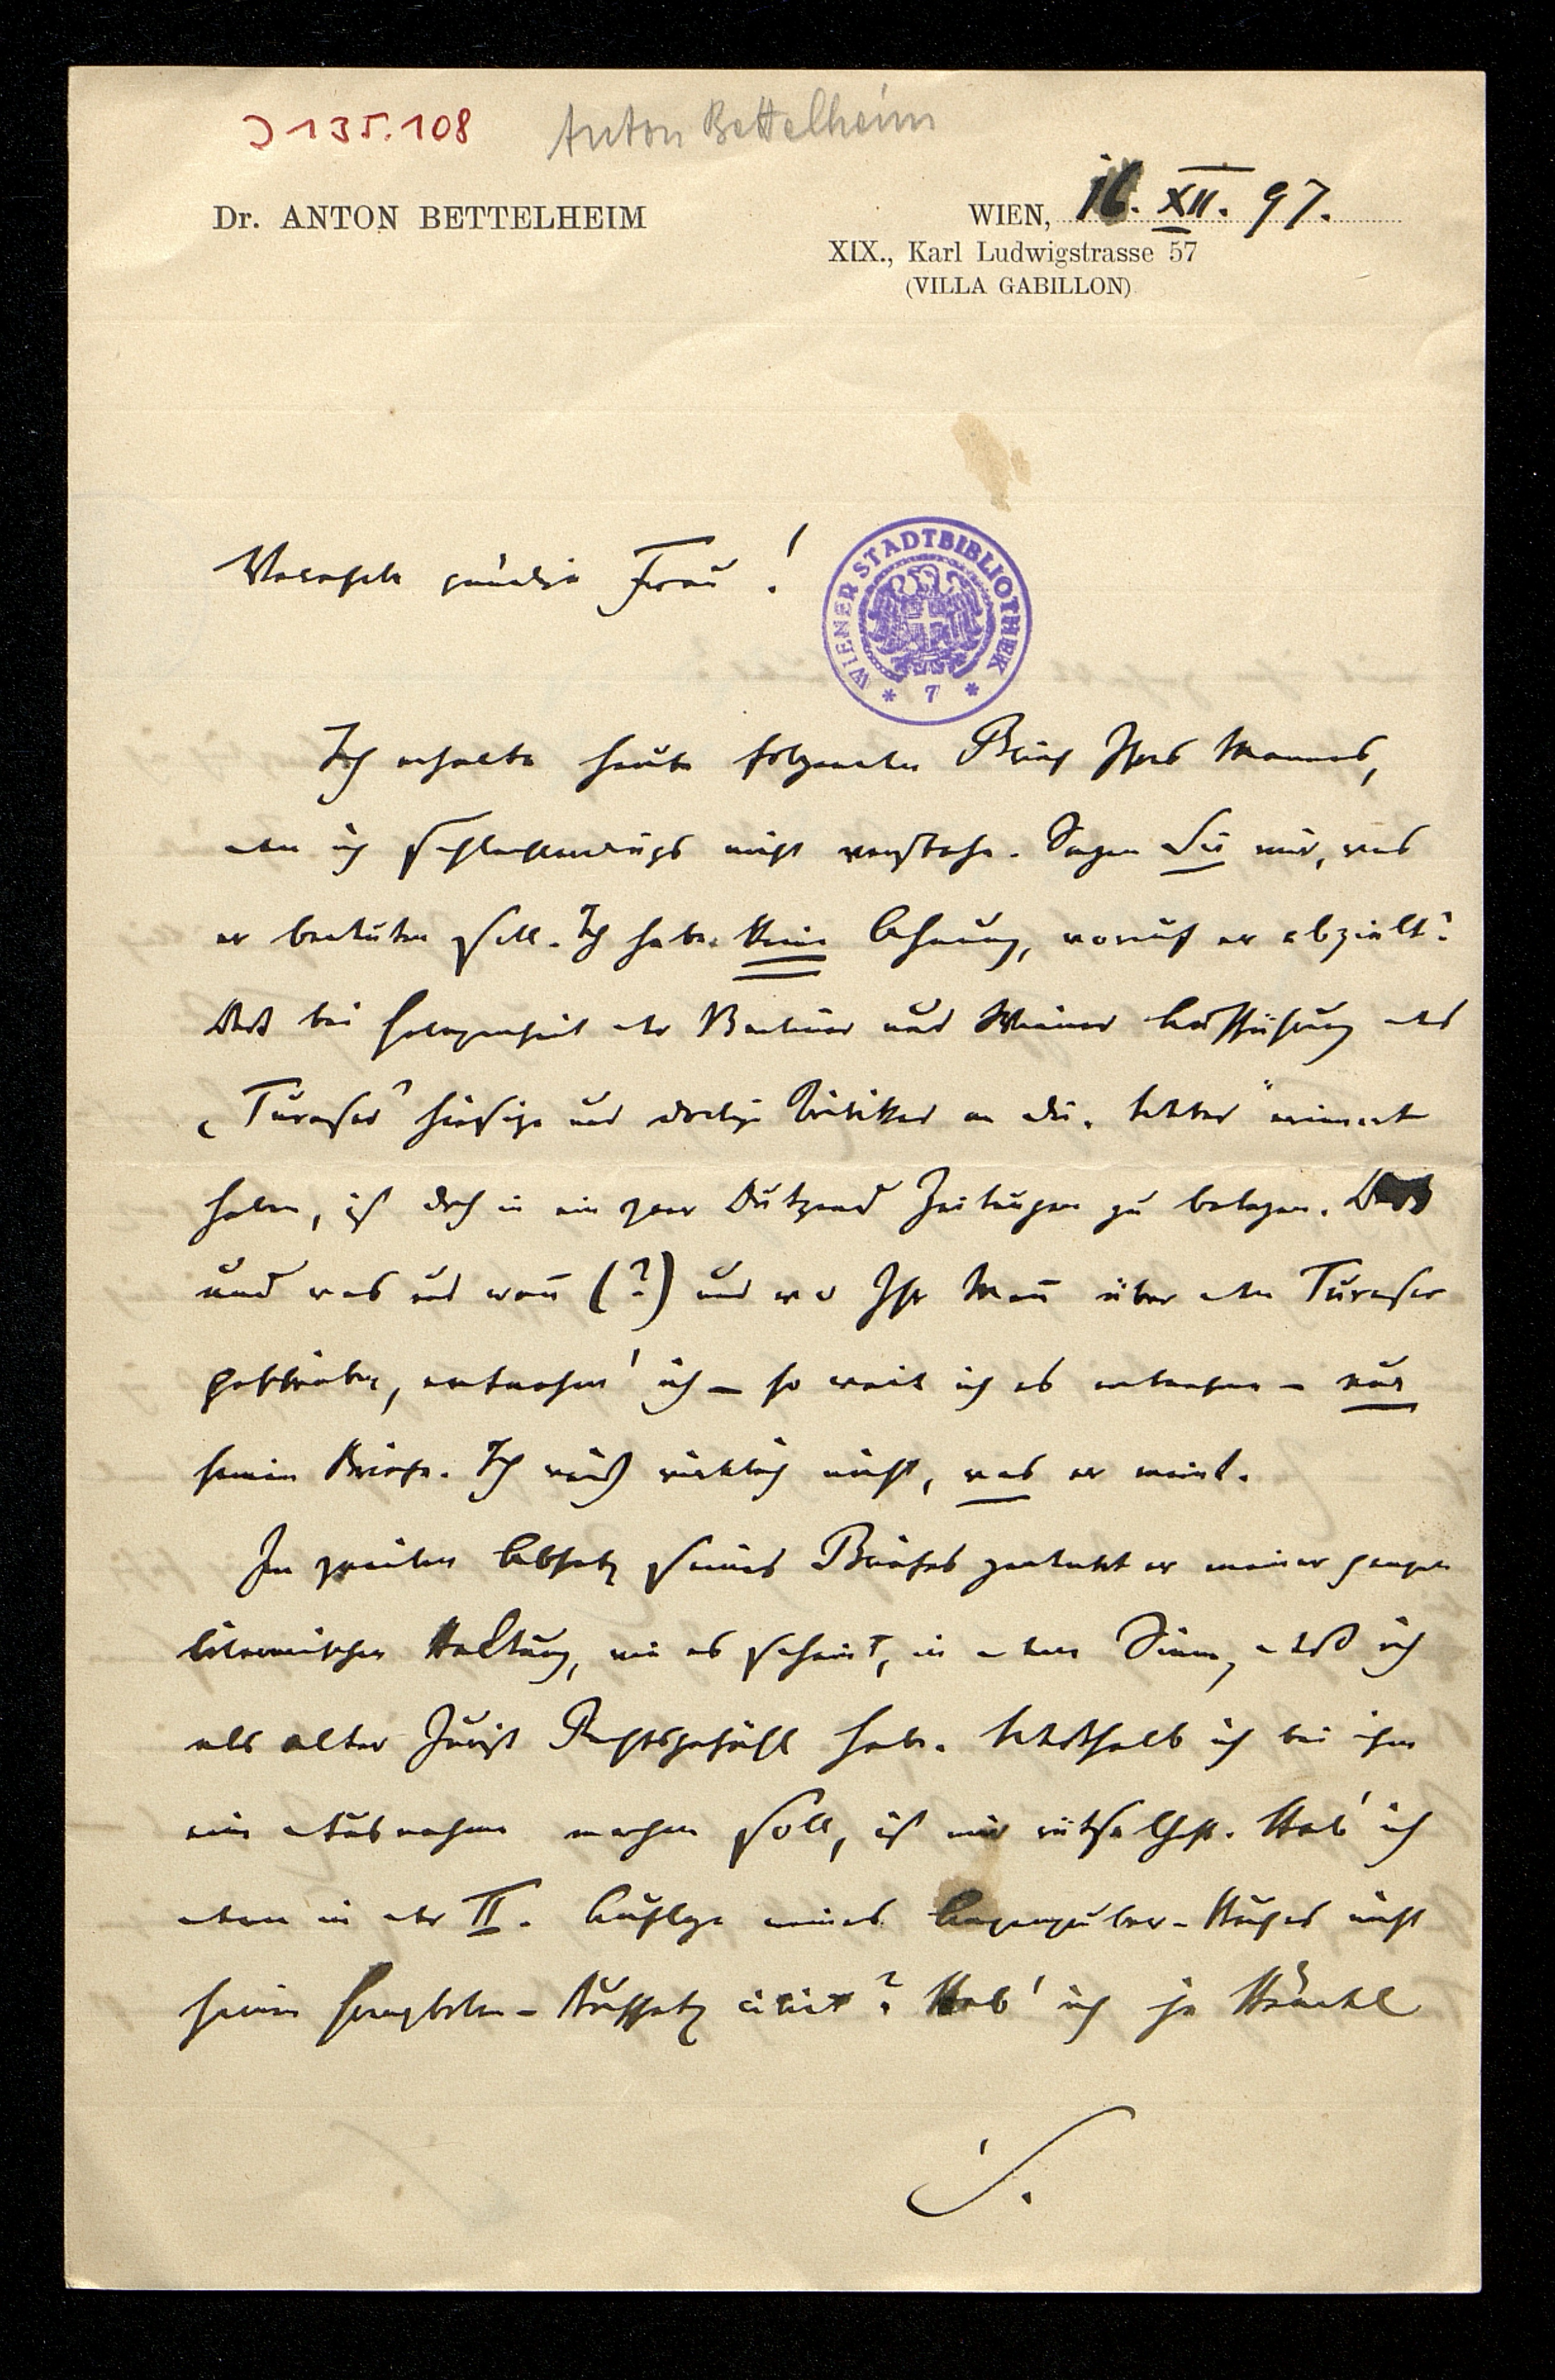 J 135.108 Anton Bettelheim
Dr. ANTON BETTELHEIM
WIEN, 16. XII. 97.
XIX., Karl Ludwigstrasse 57
(VILLA GABILLON)
Verehrte gnädige Frau!
WIENER STADTBIBLIOTHEK
* 7 *
Ich erhalte heute folgenden Brief Ihres Mannes,
den ich schlechterdings nicht verstehe. Sagen Sie mir, was
er bedeuten soll. Ich habe keine Ahnung, worauf er abzielt?
Daß bei Gelegenheit der Berliner und Wiener Aufführung des
„Turaser“ hiesige und dortige Kritiker an die erinnert
haben, ist doch in ein paar Dutzend Zeitungen zu belegen.
und was und wañ (?) und wo Ihr Mañ über den Turaser
geschrieben, entnehm' ich – so weit ich es entnehme – nur
seinem Briefe. Ich weiß wirklich nicht, was er meint.
Im zweiten Absatz seines Briefes gedenkt er meiner ganzen
literarischen Haltung, wie es scheint, in dem Sinne, daß ich
als alter Jurist Rechtsgefühl habe. Weshalb ich bei ihm
eine Ausnahme machen soll, ist mir räthselhaft. Hab' ich
denn in der II. Auflage meines Anzengruber-Buches nicht
seinen Grenzboten-Aufsatz citirt? Hab' ich ja